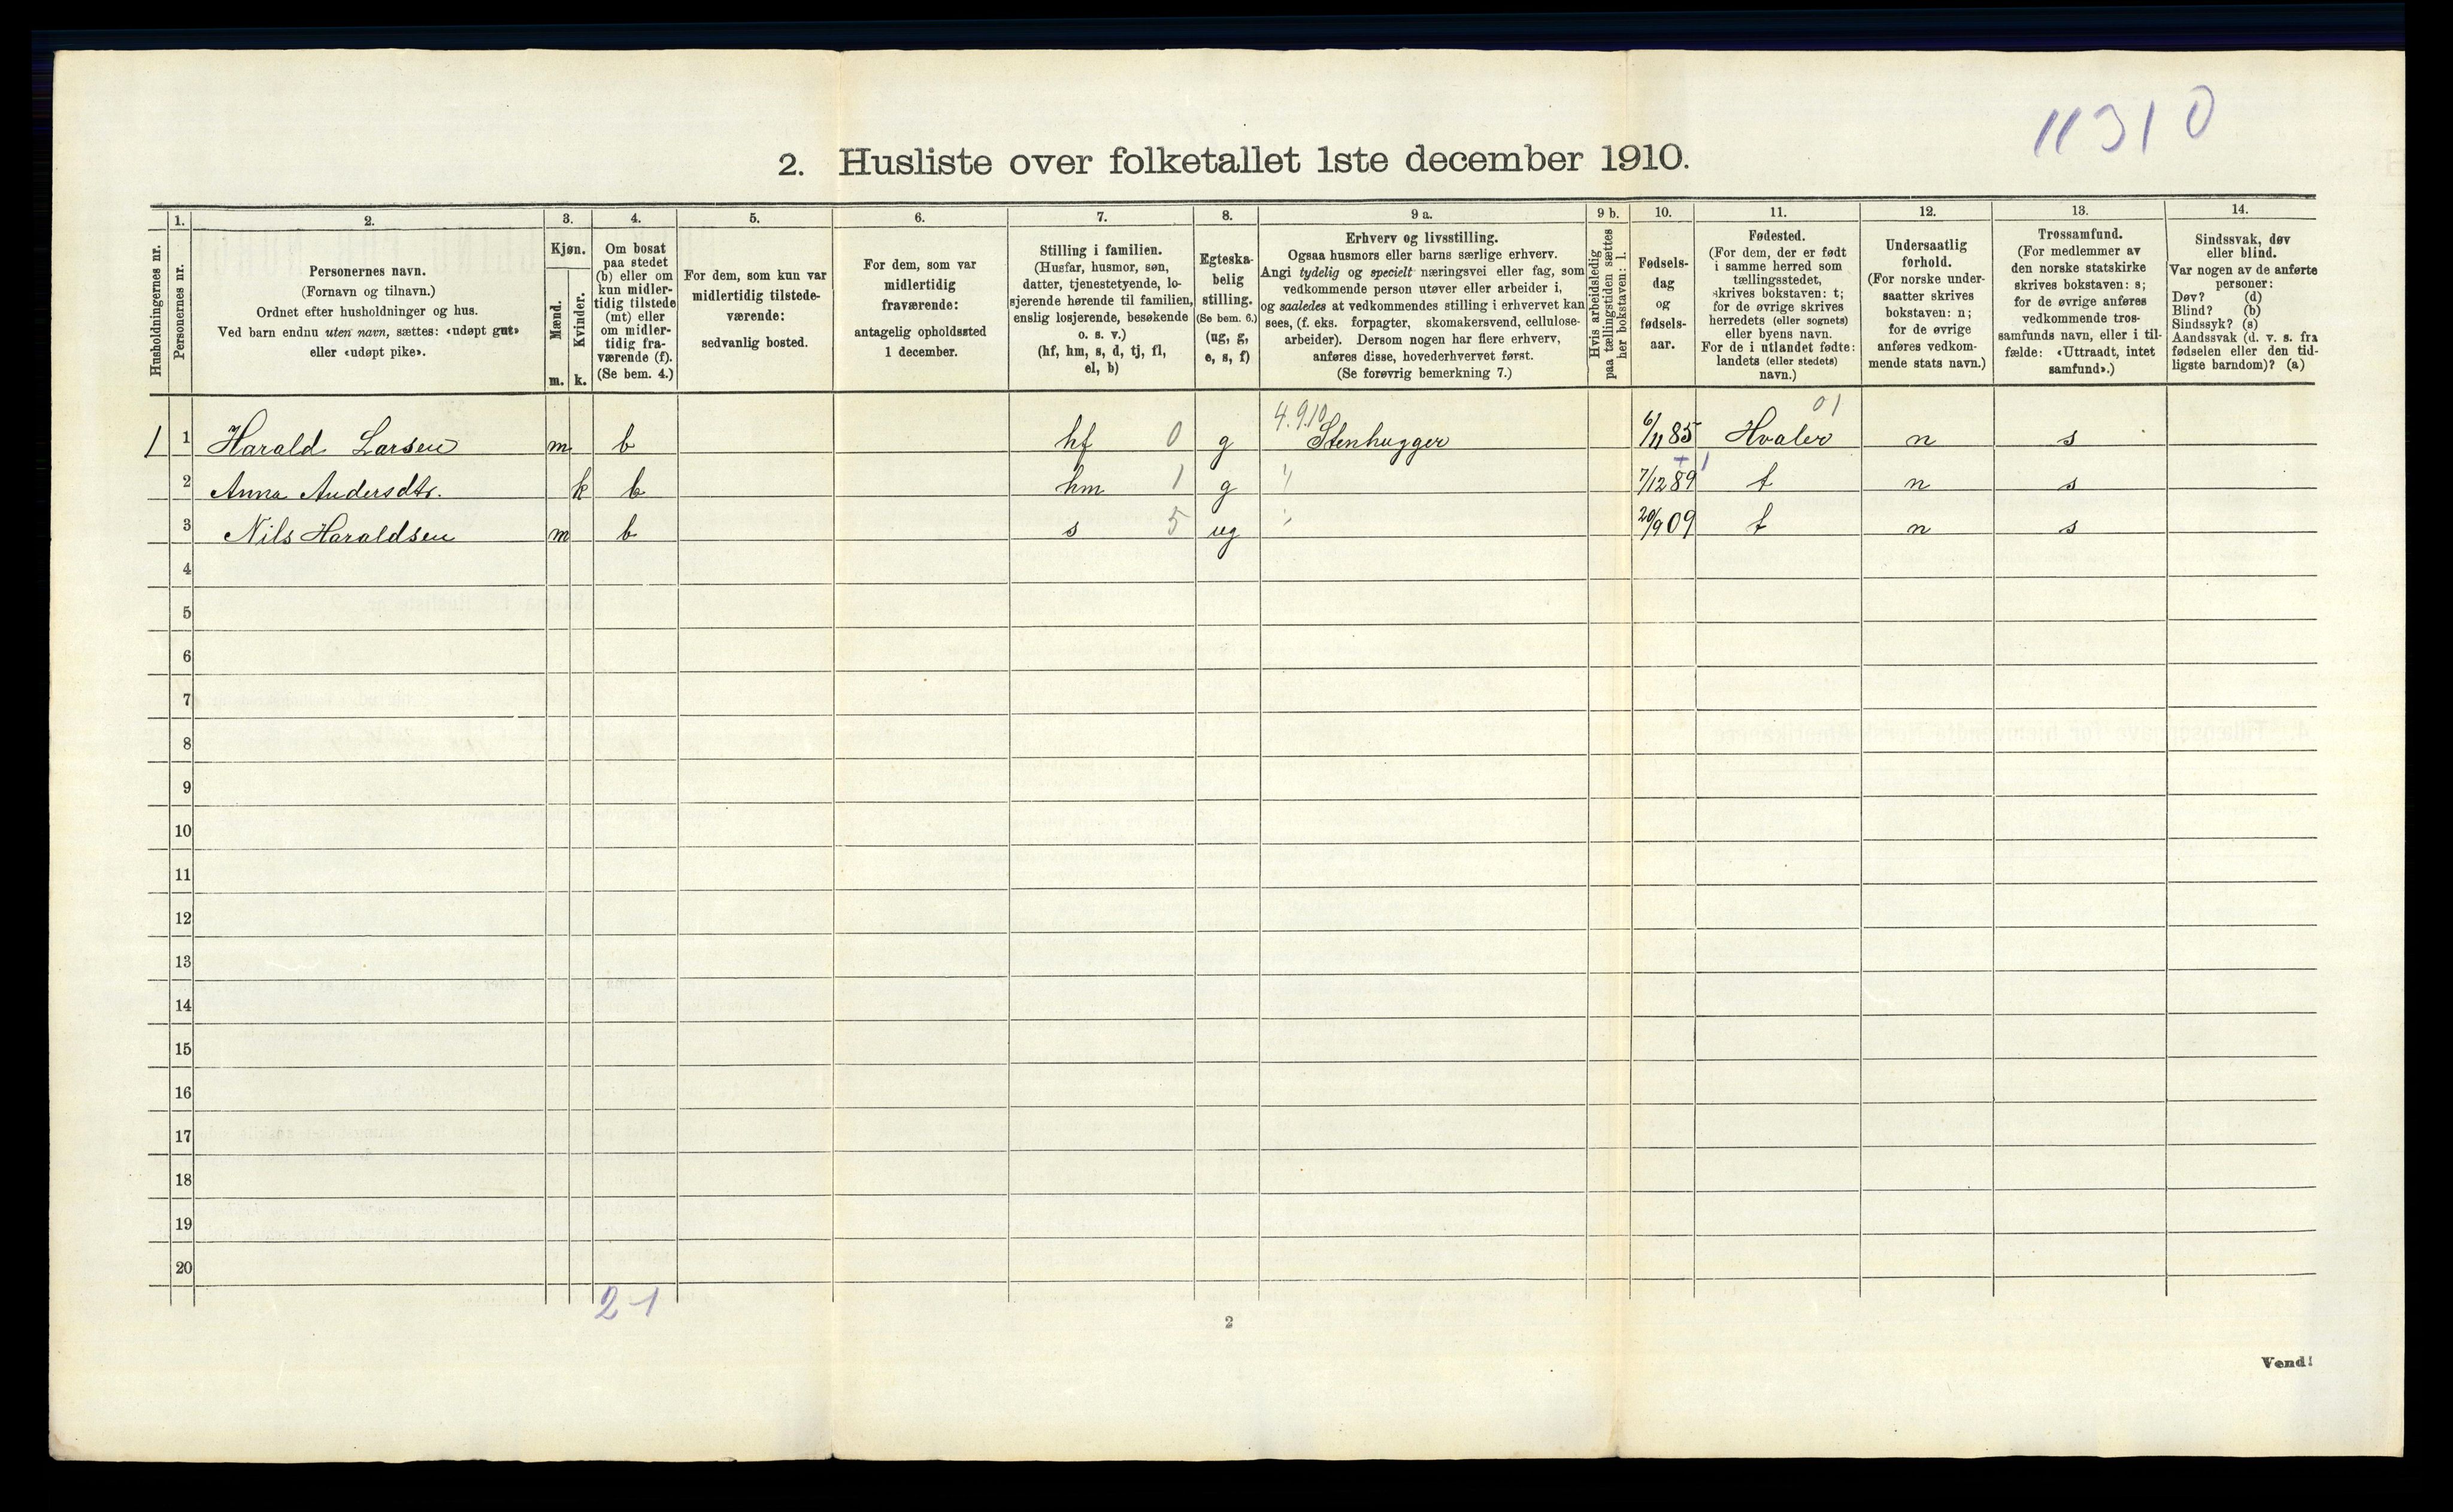 11310
2. Husliste over folketallet 1ste december 1910.
Husholdningernes nr.
1.
Personernes nr.
2.
Personernes navn.
(Fornavn og tilnavn.)
Ordnet efter husholdninger og hus.
Ved barn endnu uten navn, sættes: «udøpt gut»
eller «udøpt pike».
3.
Kjøn.
Mænd.
m.
Kvinder.
k.
4.
Om bosat
paa stedet
(b) eller om
kun midler-
tidig tilstede
(mt) eller
om midler-
tidig fra-
værende (f).
(Se bem. 4.)
5.
For dem, som kun var
midlertidig tilstede-
værende:
sedvanlig bosted.
6.
For dem, som var
midlertidig
fraværende:
antagelig opholdssted
1 december.
7.
Stilling i familien.
(Husfar, husmor, søn,
datter, tjenestetyende, lo-
sjerende hørende til familien,
enslig losjerende, besøkende
o. s. v.)
(hf, hm, s, d, tj, fl,
el, b)
8.
Egteska-
belig
stilling.
(Se bem. 6.)
(ug, g,
e, s, f)
9 a.
Erhverv og livsstilling.
Ogsaa husmors eller barns særlige erhverv.
Angi tydelig og specielt næringsvei eller fag, som
vedkommende person utøver eller arbeider i,
og saaledes at vedkommendes stilling i erhvervet kan
sees, (f. eks. forpagter, skomakersvend, cellulose-
arbeider). Dersom nogen har flere erhverv,
anføres disse, hovederhvervet først.
(Se forøvrig bemerkning 7.)
9 b.
Hvis arbeidsledig
paa tællingstiden sættes
her bokstaven: l.
10.
Fødsels-
dag
og
fødsels-
aar.
11.
Fødested.
(For dem, der er født
i samme herred som
tællingsstedet,
skrives bokstaven: t;
for de øvrige skrives
herredets (eller sognets)
eller byens navn.
For de i utlandet fødte:
landets (eller stedets)
navn.)
12.
Undersaatlig
forhold.
(For norske under-
saatter skrives
bokstaven: n;
for de øvrige
anføres vedkom-
mende stats navn.)
13.
Trossamfund.
(For medlemmer av
den norske statskirke
skrives bokstaven: s;
for de øvrige anføres
vedkommende tros-
samfunds navn, eller i til-
fælde: «Uttraadt, intet
samfund».)
14.
Sindssvak, døv
eller blind.
Var nogen av de anførte
personer:
Døv? (d)
Blind? (b)
Sindssyk? (s)
Aandssvak (d. v. s. fra
fødselen eller den tid-
ligste barndom)? (a)
4.9.10 01
1 1 Harald Larsen m b hf 0 g Stenhugger 6/11 85 Hvaler n s
+ 1
2 Anna Andersdtr. k b hm 1 g " 7/12 89 t n s
3 Nils Haraldsen m b s 5 ug " 20/9 09 t n s
4
5
6
7
8
9
10
11
12
13
14
15
16
17
18
19
20
2-1
2
Vend!